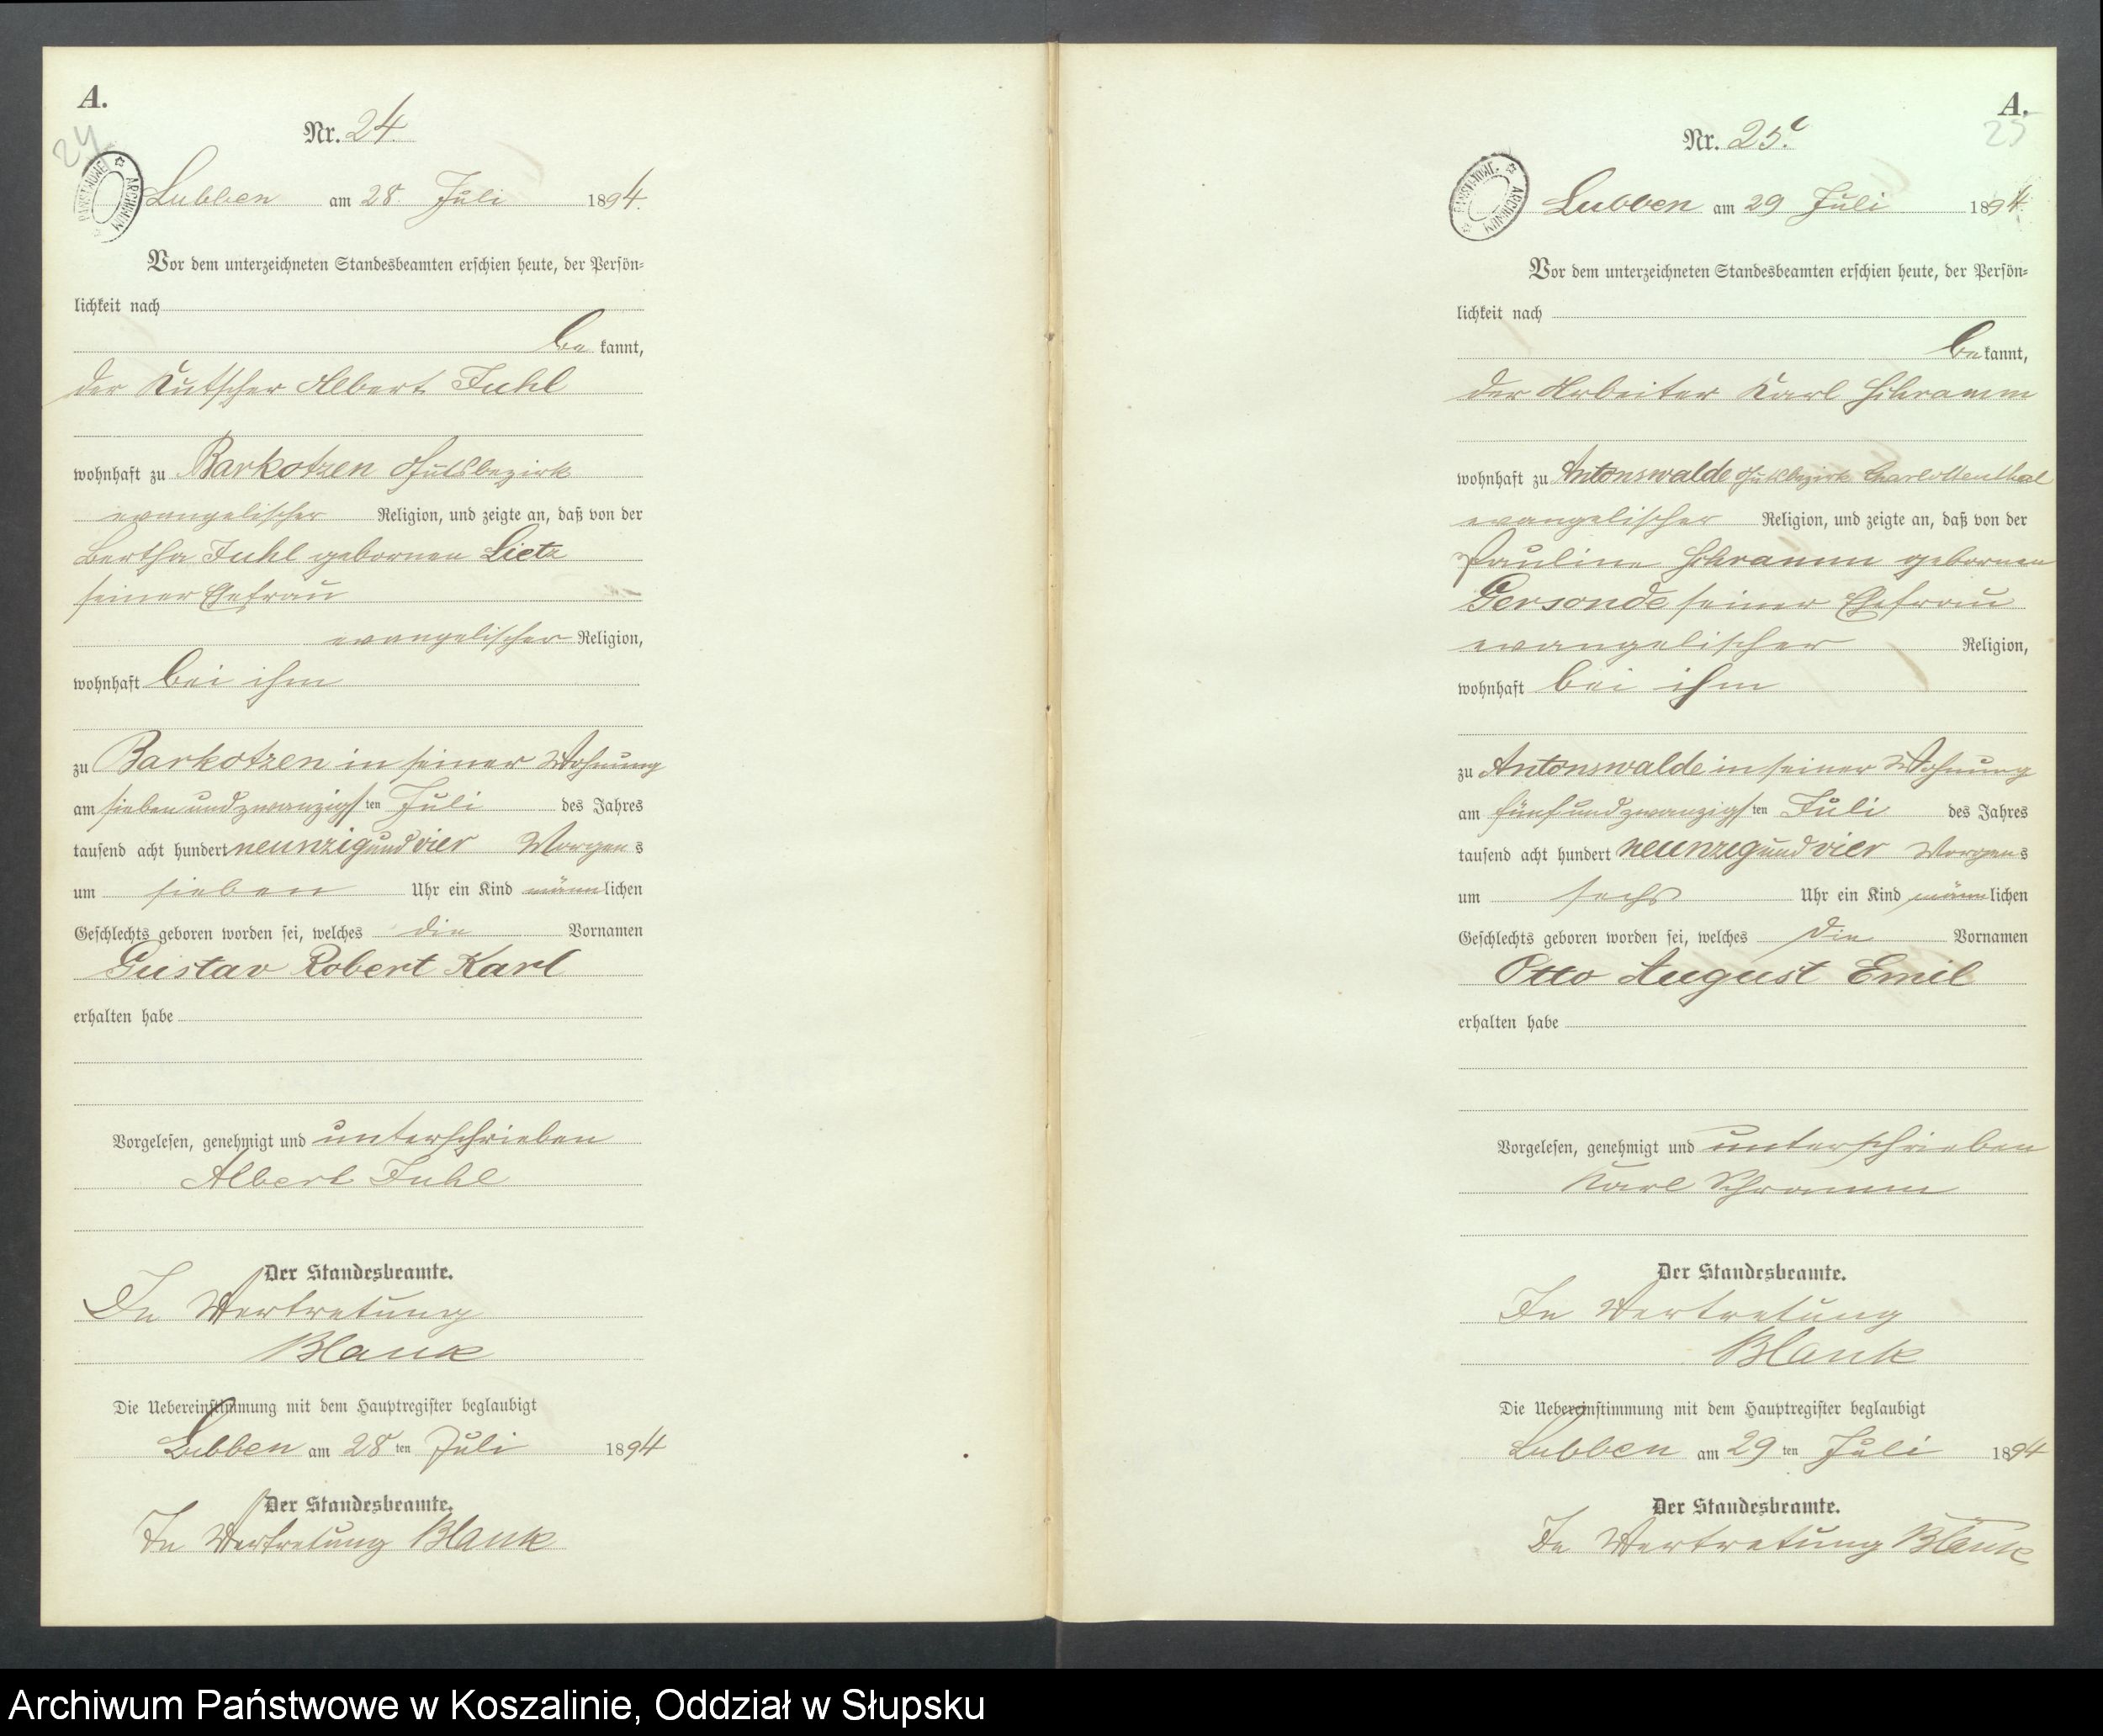 A.
24
Nr. 24.
PAŃSTWOWE ARCHIWUM
Lubben am 28. Juli 1894.
Vor dem unterzeichneten Standesbeamten erschien heute, der Persön-
lichkeit nach
be kannt,
der Kutscher Albert Juhl
wohnhaft zu Barkotzen Gutsbezirk
evangelischer Religion, und zeigte an, daß von der
Bertha Juhl gebornen Lietz
seiner Ehefrau
evangelischer Religion,
wohnhaft bei ihm
zu Barkotzen in seiner Wohnung
am siebenundzwanzigsten Juli des Jahres
tausend acht hundert neunzigundvier Morgens
um sieben Uhr ein Kind männlichen
Geschlechts geboren worden sei, welches die Vornamen
Gustav Robert Karl
erhalten habe
Vorgelesen, genehmigt und unterschrieben
Albert Juhl
Der Standesbeamte.
In Vertretung
Blank
Die Uebereinstimmung mit dem Hauptregister beglaubigt
Lubben am 28 ten Juli 1894
Der Standesbeamte.
In Vertretung Blank
A.
25
Nr. 25.
PAŃSTWOWE ARCHIWUM
Lubben am 29 Juli 1894.
Vor dem unterzeichneten Standesbeamten erschien heute, der Persön-
lichkeit nach
be kannt,
der Arbeiter Karl Schramm
wohnhaft zu Antonswalde Gutsbezirk Charlottenthal
evangelischer Religion, und zeigte an, daß von der
Pauline Schramm gebornen
Gersonde seiner Ehefrau
evangelischer Religion,
wohnhaft bei ihm
zu Antonswalde in seiner Wohnung
am fünfundzwanzigsten Juli des Jahres
tausend acht hundert neunzigundvier Morgens
um sechs Uhr ein Kind männlichen
Geschlechts geboren worden sei, welches die Vornamen
Otto August Emil
erhalten habe
Vorgelesen, genehmigt und unterschrieben
Karl Schramm
Der Standesbeamte.
In Vertretung
Blank
Die Uebereinstimmung mit dem Hauptregister beglaubigt
Lubben am 29 ten Juli 1894
Der Standesbeamte.
In Vertretung Blank
Archiwum Państwowe w Koszalinie, Oddział w Słupsku